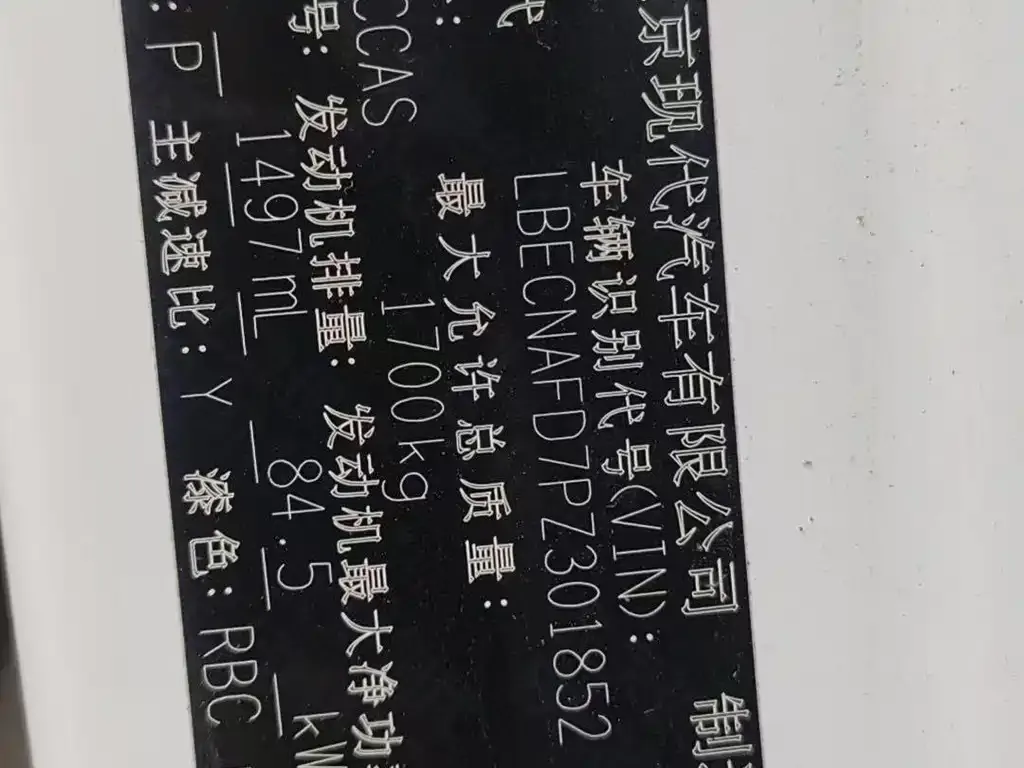 京现代汽车有限公司 制
车辆识别代号(VIN):
代 LBECNAFD7PZ301852
: 最大允许总质量:
CCAS 1700kg
号: 发动机排量: 发动机最大净功
1497mL 84.5 kW
: P 主减速比: Y 漆色: RBC